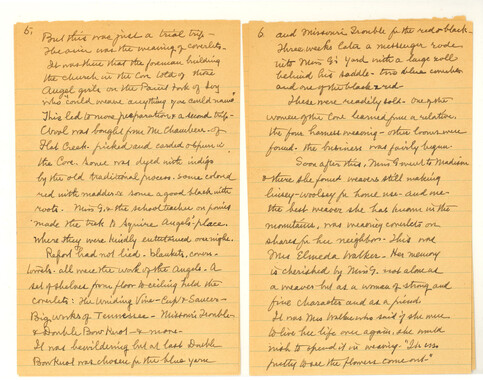 5.
But this was just a trial trip -
The aim was the weaving of coverlets -
It was there that the foreman building
the church in the Cove told of three
Angel girls on the Paint Fork of Ivy
who "could weave anything you could name"
This led to more preparation & a second trip -
Wool was bought from Mr. Chambers - of
Flat Creek - picked and carded & spun in
the Cove - some was dyed with indigo
by the old traditional process, some colored
red with madder & some a good black with
roots. Miss G. & the school teacher on ponies
made the trek to Squire Angel's - place,
where they were kindly entertained one night.
Report had not lied - blankets, cover-
lets - all were the work of the Angels. A
set of shelves from floor to ceiling held the
coverlets: The Winding Vine - Cup & Saucer -
Big works of Tennessee - Missouri Trouble -
& Double Bow Knot - & more -
It was bewildering but at last Double
Bow Knot was chosen for the blue yarn
6
and Missouri Trouble for the red & black -
Three weeks later a messenger rode
into Miss G's Yard with a large roll
behind his saddle - two blue coverlets
and one of the black & red -
These were readily sold - One of the
women of the Cove learned from a relative
the four harness weaving - other looms were
found - the business was fairly begun
Soon after this, Miss G went to Madison
& there she found weavers still making
linsey-woolsey for home use - and one
the best weaver she has known in the
mountains, was weaving coverlets on
shares for her neighbors - This was
Mrs Elmeda Walker - Her memory
is cherished by Miss G. not alone as
a weaver but as a woman of strong and
fine character and as a friend
It was Mrs Walker who said if she were
to live her life over again, she would
wish to spend it in weaving - "It's so
pretty to see the flowers come out"